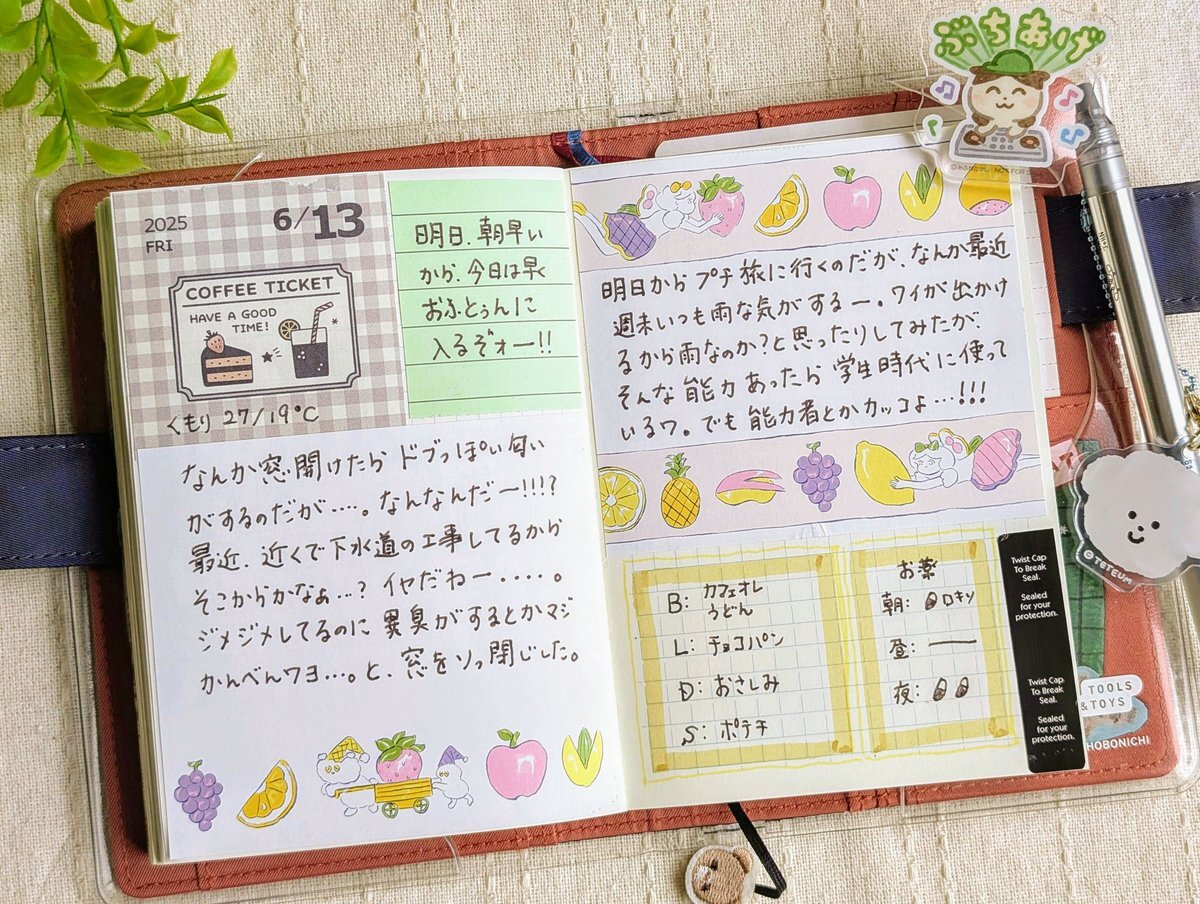 2025
FRI
6/13
COFFEE TICKET
HAVE A GOOD
TIME!
くもり 27/19℃
明日、朝早い
から、今日は早く
おふとぅんに
入るぞォー!!
なんか窓開けたら ドブっぽい匂い
がするのだが‥‥。なんなんだー!!!?
最近、近くで下水道の工事してるから
そこからかなぁ…? イヤだねー‥‥。
ジメジメしてるのに 異臭がするとかマジ
かんべんワヨ…。と、窓をソっ閉じした。
ぶちあげ
明日から プチ旅に行くのだが、なんか最近
週末いつも雨な気がするー。ワイが出かけ
るから雨なのか?と思ったりしてみたが、
そんな能力あったら学生時代に使って
いるワ。でも能力者とかカッコよ…!!!
B: カフェオレ
うどん
L: チョコパン
D: おさしみ
S: ポテチ
お薬
朝: ロキソ
昼: ー
夜:
Twist Cap
To Break
Seal.
Sealed
for your
protection.
Twist Cap
To Break
Seal.
Sealed
for your
protection.
©TETEUM
TOOLS
&TOYS
HOBONICHI